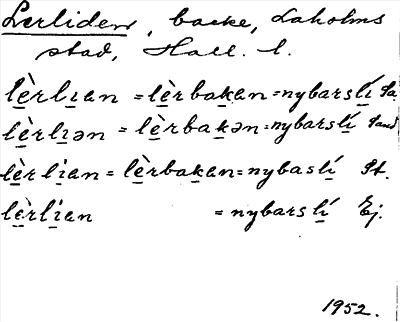 Lerliden, backe, Laholms
stad, Hall. l.
lè̠rlı̠an = lè̠rbaḵan = nybarslí̠
lè̠rlı̠ən = lè̠rbaḵən = nybarslí̠ Sand
lè̠rli̠an = lè̠rbaḵan = nybaslí̠ St.
lè̠rli̠an = nybarslí̠ Ej.
1952.